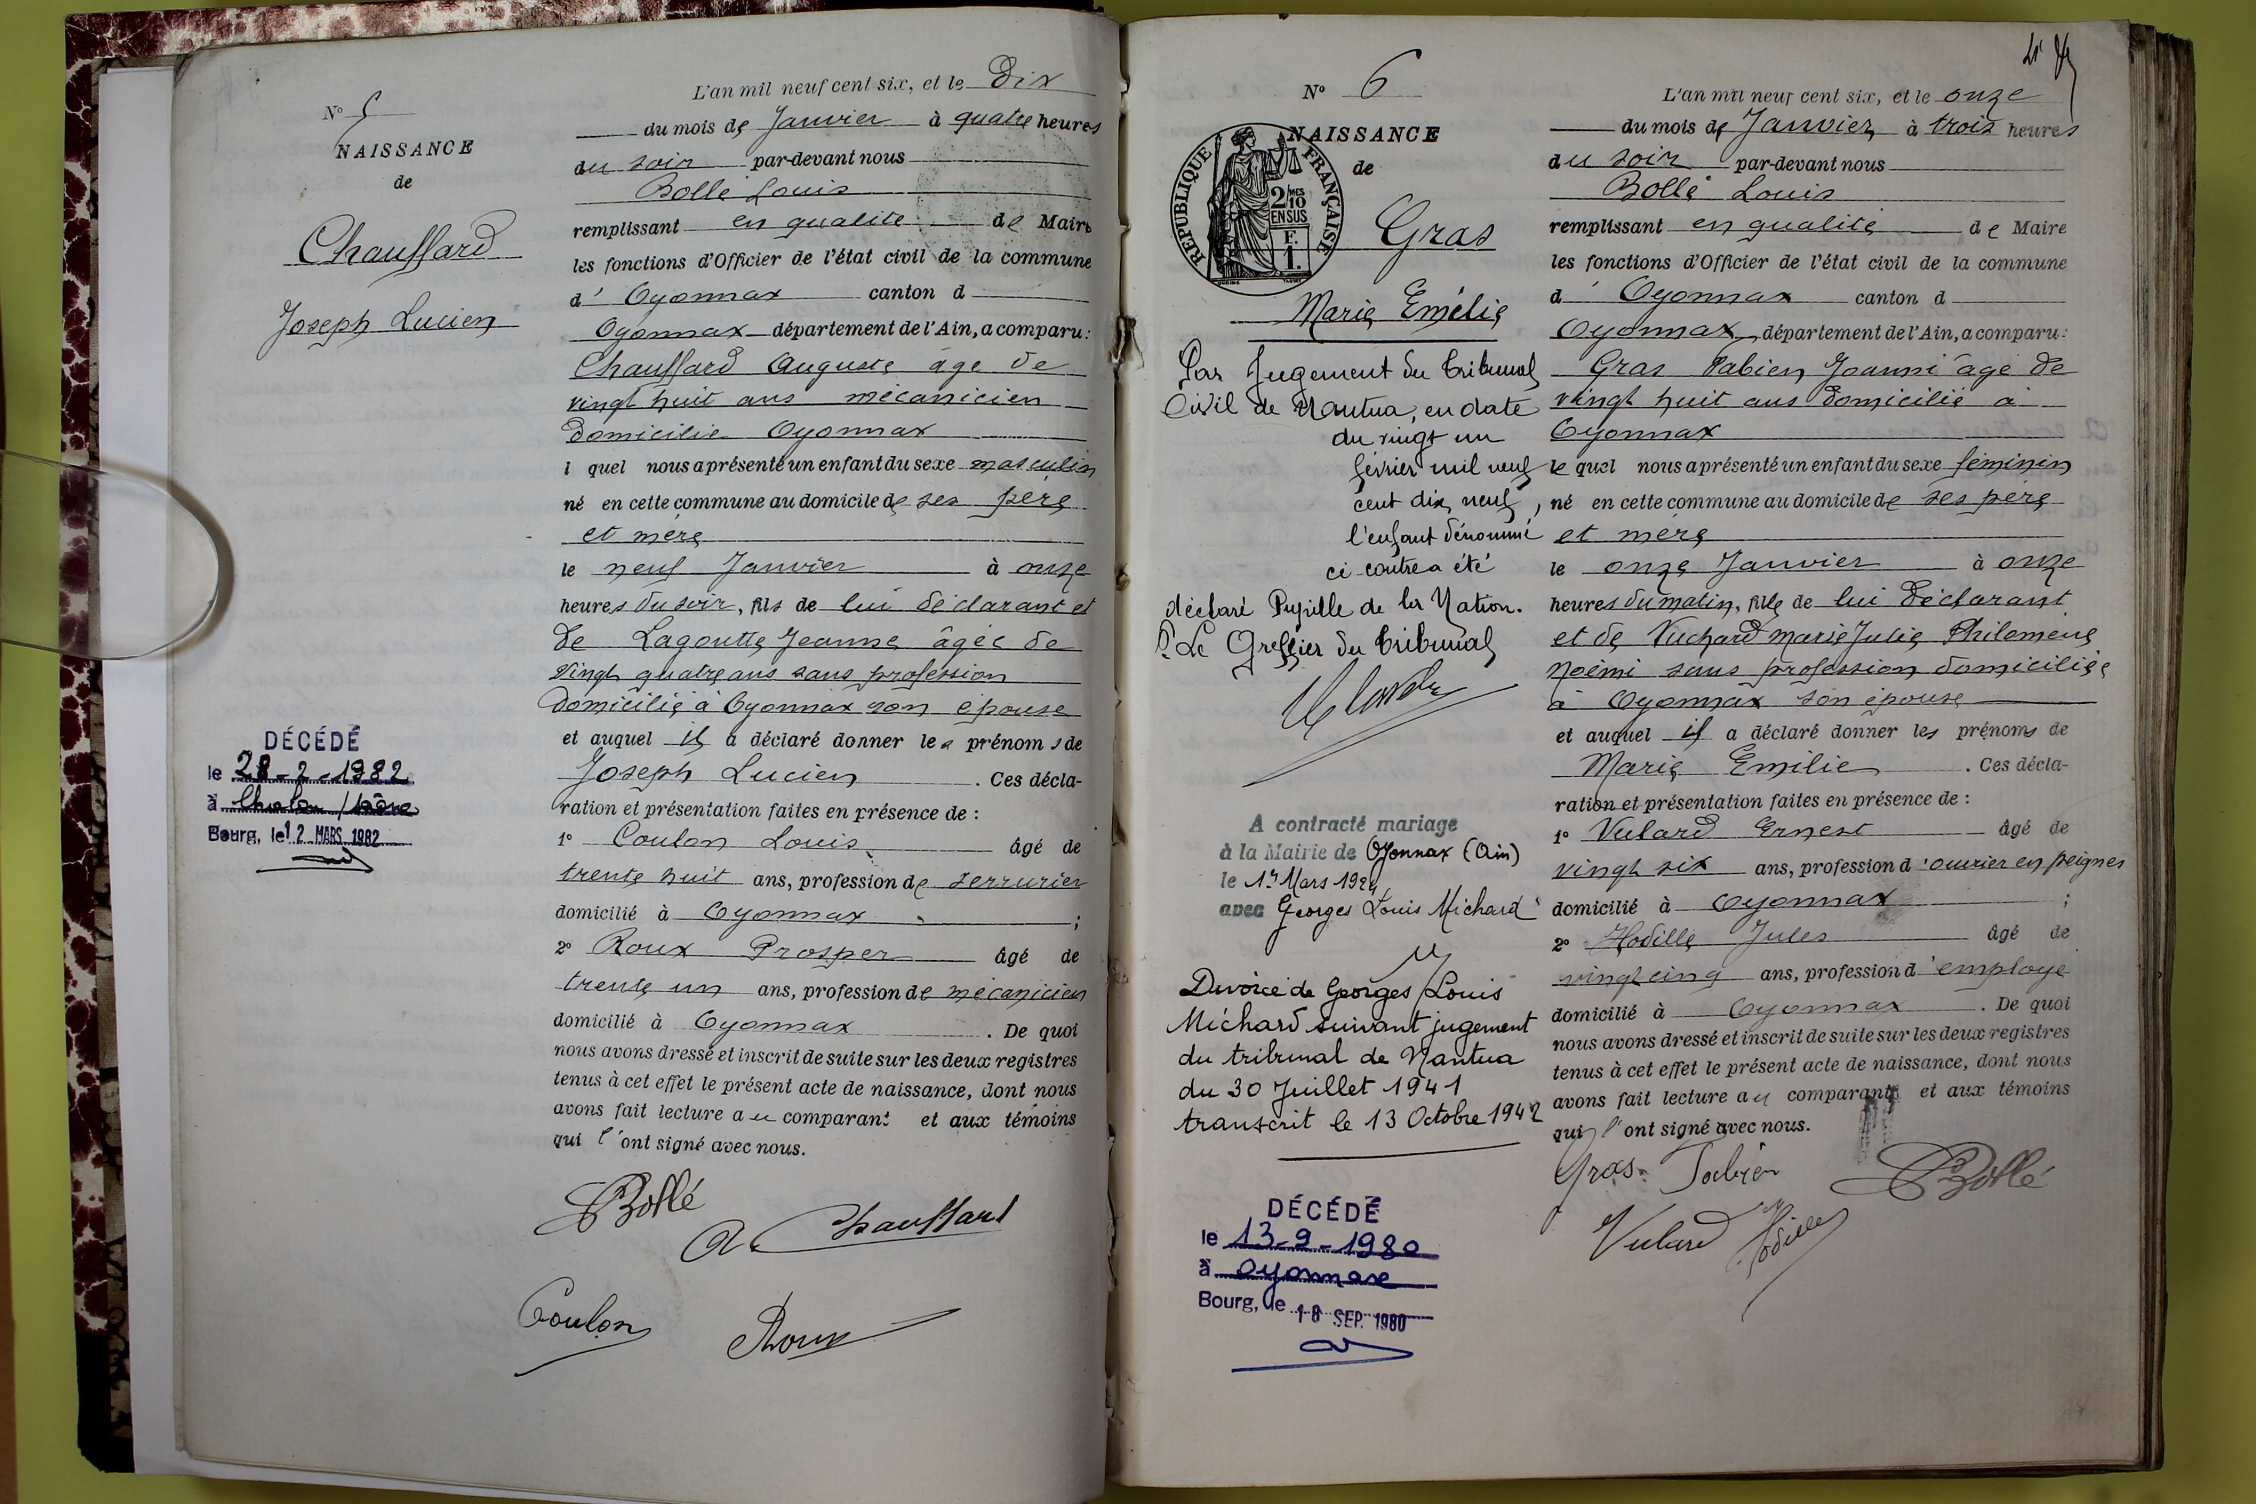 N° 5
NAISSANCE
de
Chauffard
Joseph Lucien
DÉCÉDÉ
le 28-2-1982
à Chalon / Saône
Bourg, le 12 MARS 1982
L'an mil neuf cent six, et le Dix
du mois de Janvier à quatre heures
du soir par-devant nous
Bollé Louis
remplissant en qualité de Maire
les fonctions d'Officier de l'état civil de la commune
d' Oyonnax canton d
Oyonnax département de l'Ain, a comparu :
Chauffard Auguste âgé de
vingt huit ans mécanicien
domicilié Oyonnax
l quel nous a présenté un enfant du sexe masculin
né en cette commune au domicile de ses père
et mère
le neuf Janvier à onze
heures du soir, fils de lui déclarant et
de Lagoutte Jeanne âgée de
vingt quatre ans sans profession
domiciliée à Oyonnax son épouse
et auquel il a déclaré donner les prénoms de
Joseph Lucien . Ces décla-
ration et présentation faites en présence de :
1° Coulon Louis âgé de
trente huit ans, profession de serrurier
domicilié à Oyonnax ;
2° Roux Prosper âgé de
trente un ans, profession de mécanicien
domicilié à Oyonnax . De quoi
nous avons dressé et inscrit de suite sur les deux registres
tenus à cet effet le présent acte de naissance, dont nous
avons fait lecture au comparant et aux témoins
qui l'ont signé avec nous.
Bollé
A. Chauffard
Coulon
Roux
N° 6
NAISSANCE
de
RÉPUBLIQUE FRANÇAISE
2/10 MES
EN SUS
F.
1.
Gras
Marie Emélie
Par Jugement du Tribunal
Civil de Nantua, en date
du vingt un
février mil neuf
cent dix neuf,
l'enfant dénommé
ci contre a été
déclaré Pupille de la Nation.
Pr. Le Greffier du Tribunal
A contracté mariage
à la Mairie de Oyonnax (Ain)
le 1er Mars 1924
avec Georges Louis Michard
Divorcé de Georges Louis
Michard suivant jugement
du tribunal de Nantua
du 30 Juillet 1941
transcrit le 13 Octobre 1942
DÉCÉDÉ
le 13-9-1980
à Oyonnax
Bourg, le 18 SEP. 1980
L'an mil neuf cent six, et le onze
du mois de Janvier à trois heures
du soir par-devant nous
Bollé Louis
remplissant en qualité de Maire
les fonctions d'Officier de l'état civil de la commune
d' Oyonnax canton d
Oyonnax, département de l'Ain, a comparu :
Gras Fabien Joanni âgé de
vingt huit ans domicilié à
Oyonnax
le quel nous a présenté un enfant du sexe féminin
né en cette commune au domicile de ses père
et mère
le onze Janvier à onze
heures du matin, fille de lui déclarant
et de Vuchard Marie Julie Philomène
Noémi sans profession domiciliée
à Oyonnax son épouse
et auquel il a déclaré donner les prénoms de
Marie Emilie . Ces décla-
ration et présentation faites en présence de :
1° Vulard Ernest âgé de
vingt six ans, profession d'ouvrier en peignes
domicilié à Oyonnax ;
2° Hodille Jules âgé de
vingt cinq ans, profession d'employé
domicilié à Oyonnax . De quoi
nous avons dressé et inscrit de suite sur les deux registres
tenus à cet effet le présent acte de naissance, dont nous
avons fait lecture au comparant et aux témoins
qui l'ont signé avec nous.
Gras Fabien
Bollé
Vulard
Hodille